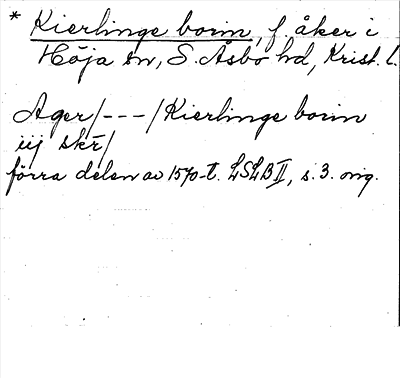 * Kierlinge borin, f. åker i
Höja sn, S. Åsbo hd, Krist. l.
Ager/---/Kierlinge borin
iij skr/
förra delen av 1570-t. LSLB II, s. 3. orig.